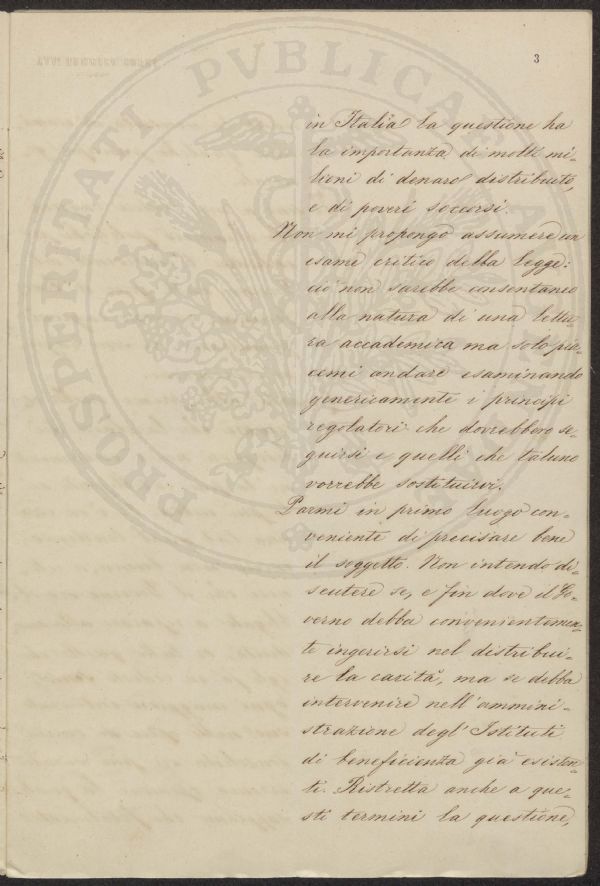 3
in Italia la questione ha
la importanza di molti mi=
lioni di denaro distribuito,
e di poveri soccorsi.
Non mi propongo assumere un
esame critico della legge:
ciò non sarebbe consentaneo
alla natura di una lettu=
ra accademica ma solo pia=
cemi andare esaminando
genericamente i principi
regolatori che dovrebbero se=
guirsi e quelli che taluno
vorrebbe sostituirvi.
Parmi in primo luogo con=
veniente di precisare bene
il soggetto. Non intendo di=
scutere se, e fin dove il Go=
verno debba convenientemen=
te ingerirsi nel distribui=
re la carità, ma se debba
intervenire nell'ammini=
strazione degl'Istituti
di beneficienza già esisten=
ti. Ristretta anche a que=
sti termini la questione,
PROSPERITATI PVBLICAE